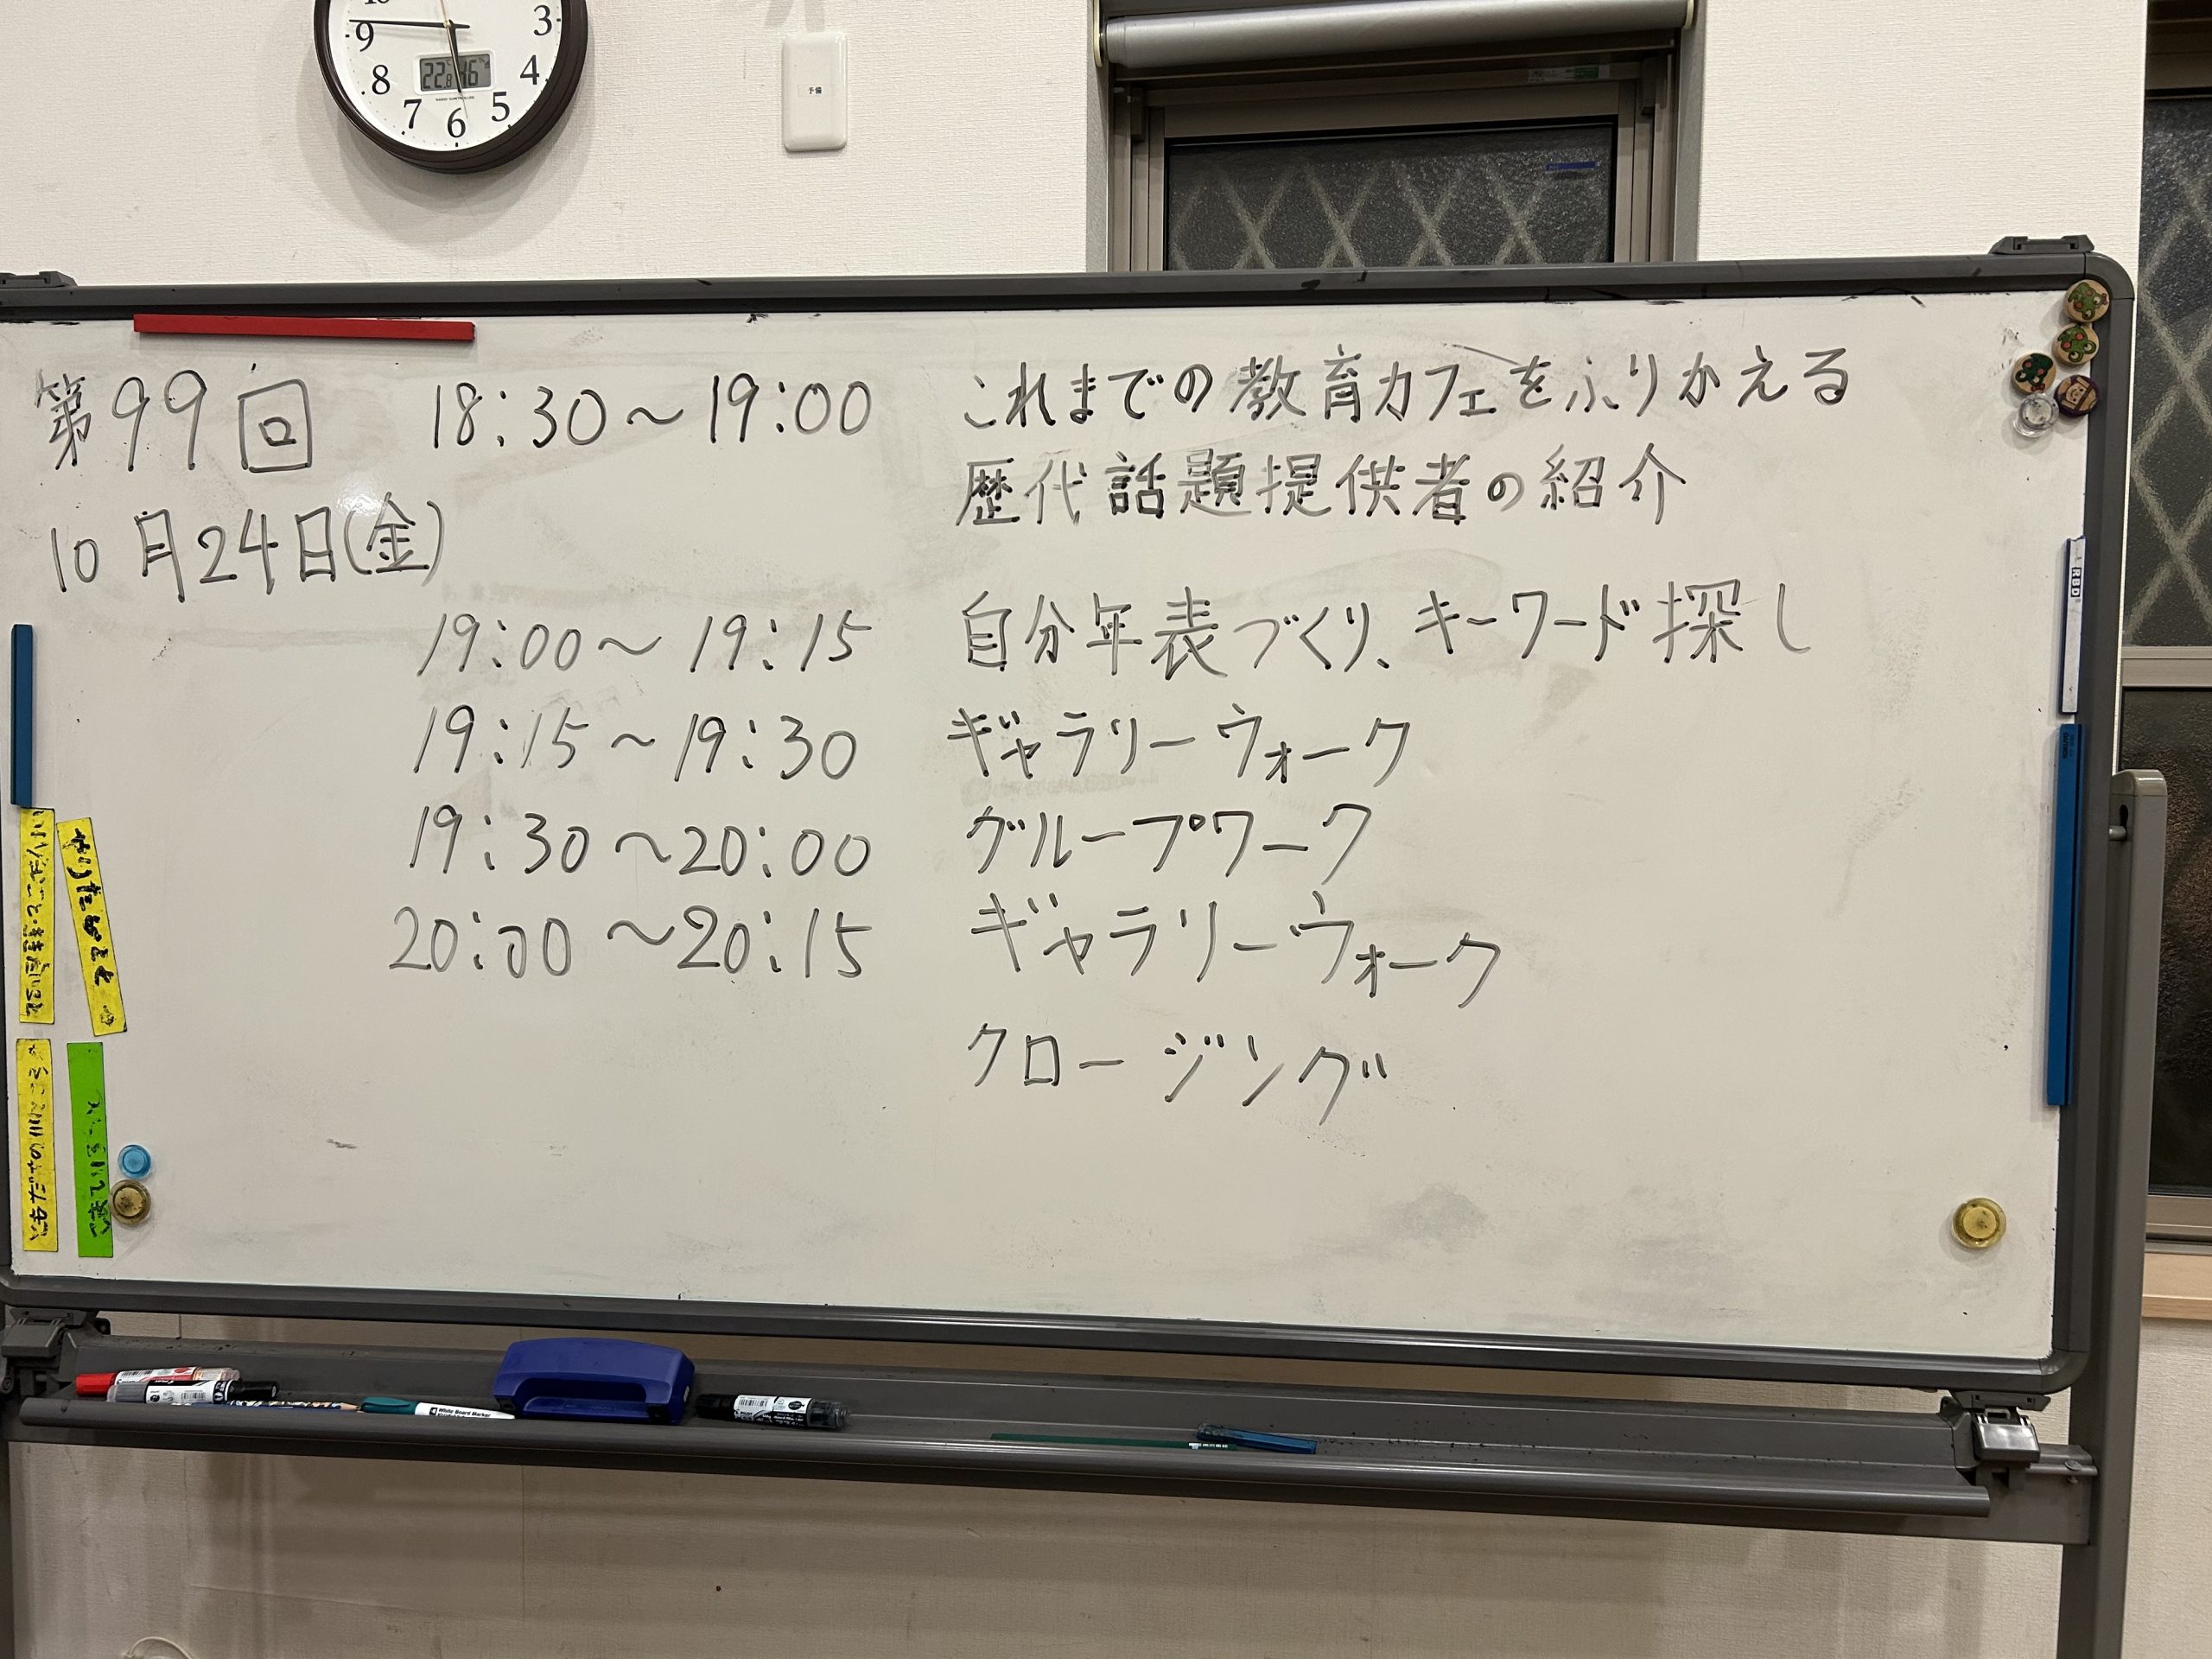 3
9
8
4
7
5
6
予備
第99回 18:30～19:00 これまでの教育カフェをふりかえる
歴代話題提供者の紹介
10月24日(金)
19:00～19:15 自分年表づくり、キーワード探し
19:15～19:30 ギャラリーウォーク
19:30～20:00 グループワーク
20:00～20:15 ギャラリーウォーク
クロージング
White Board Marker